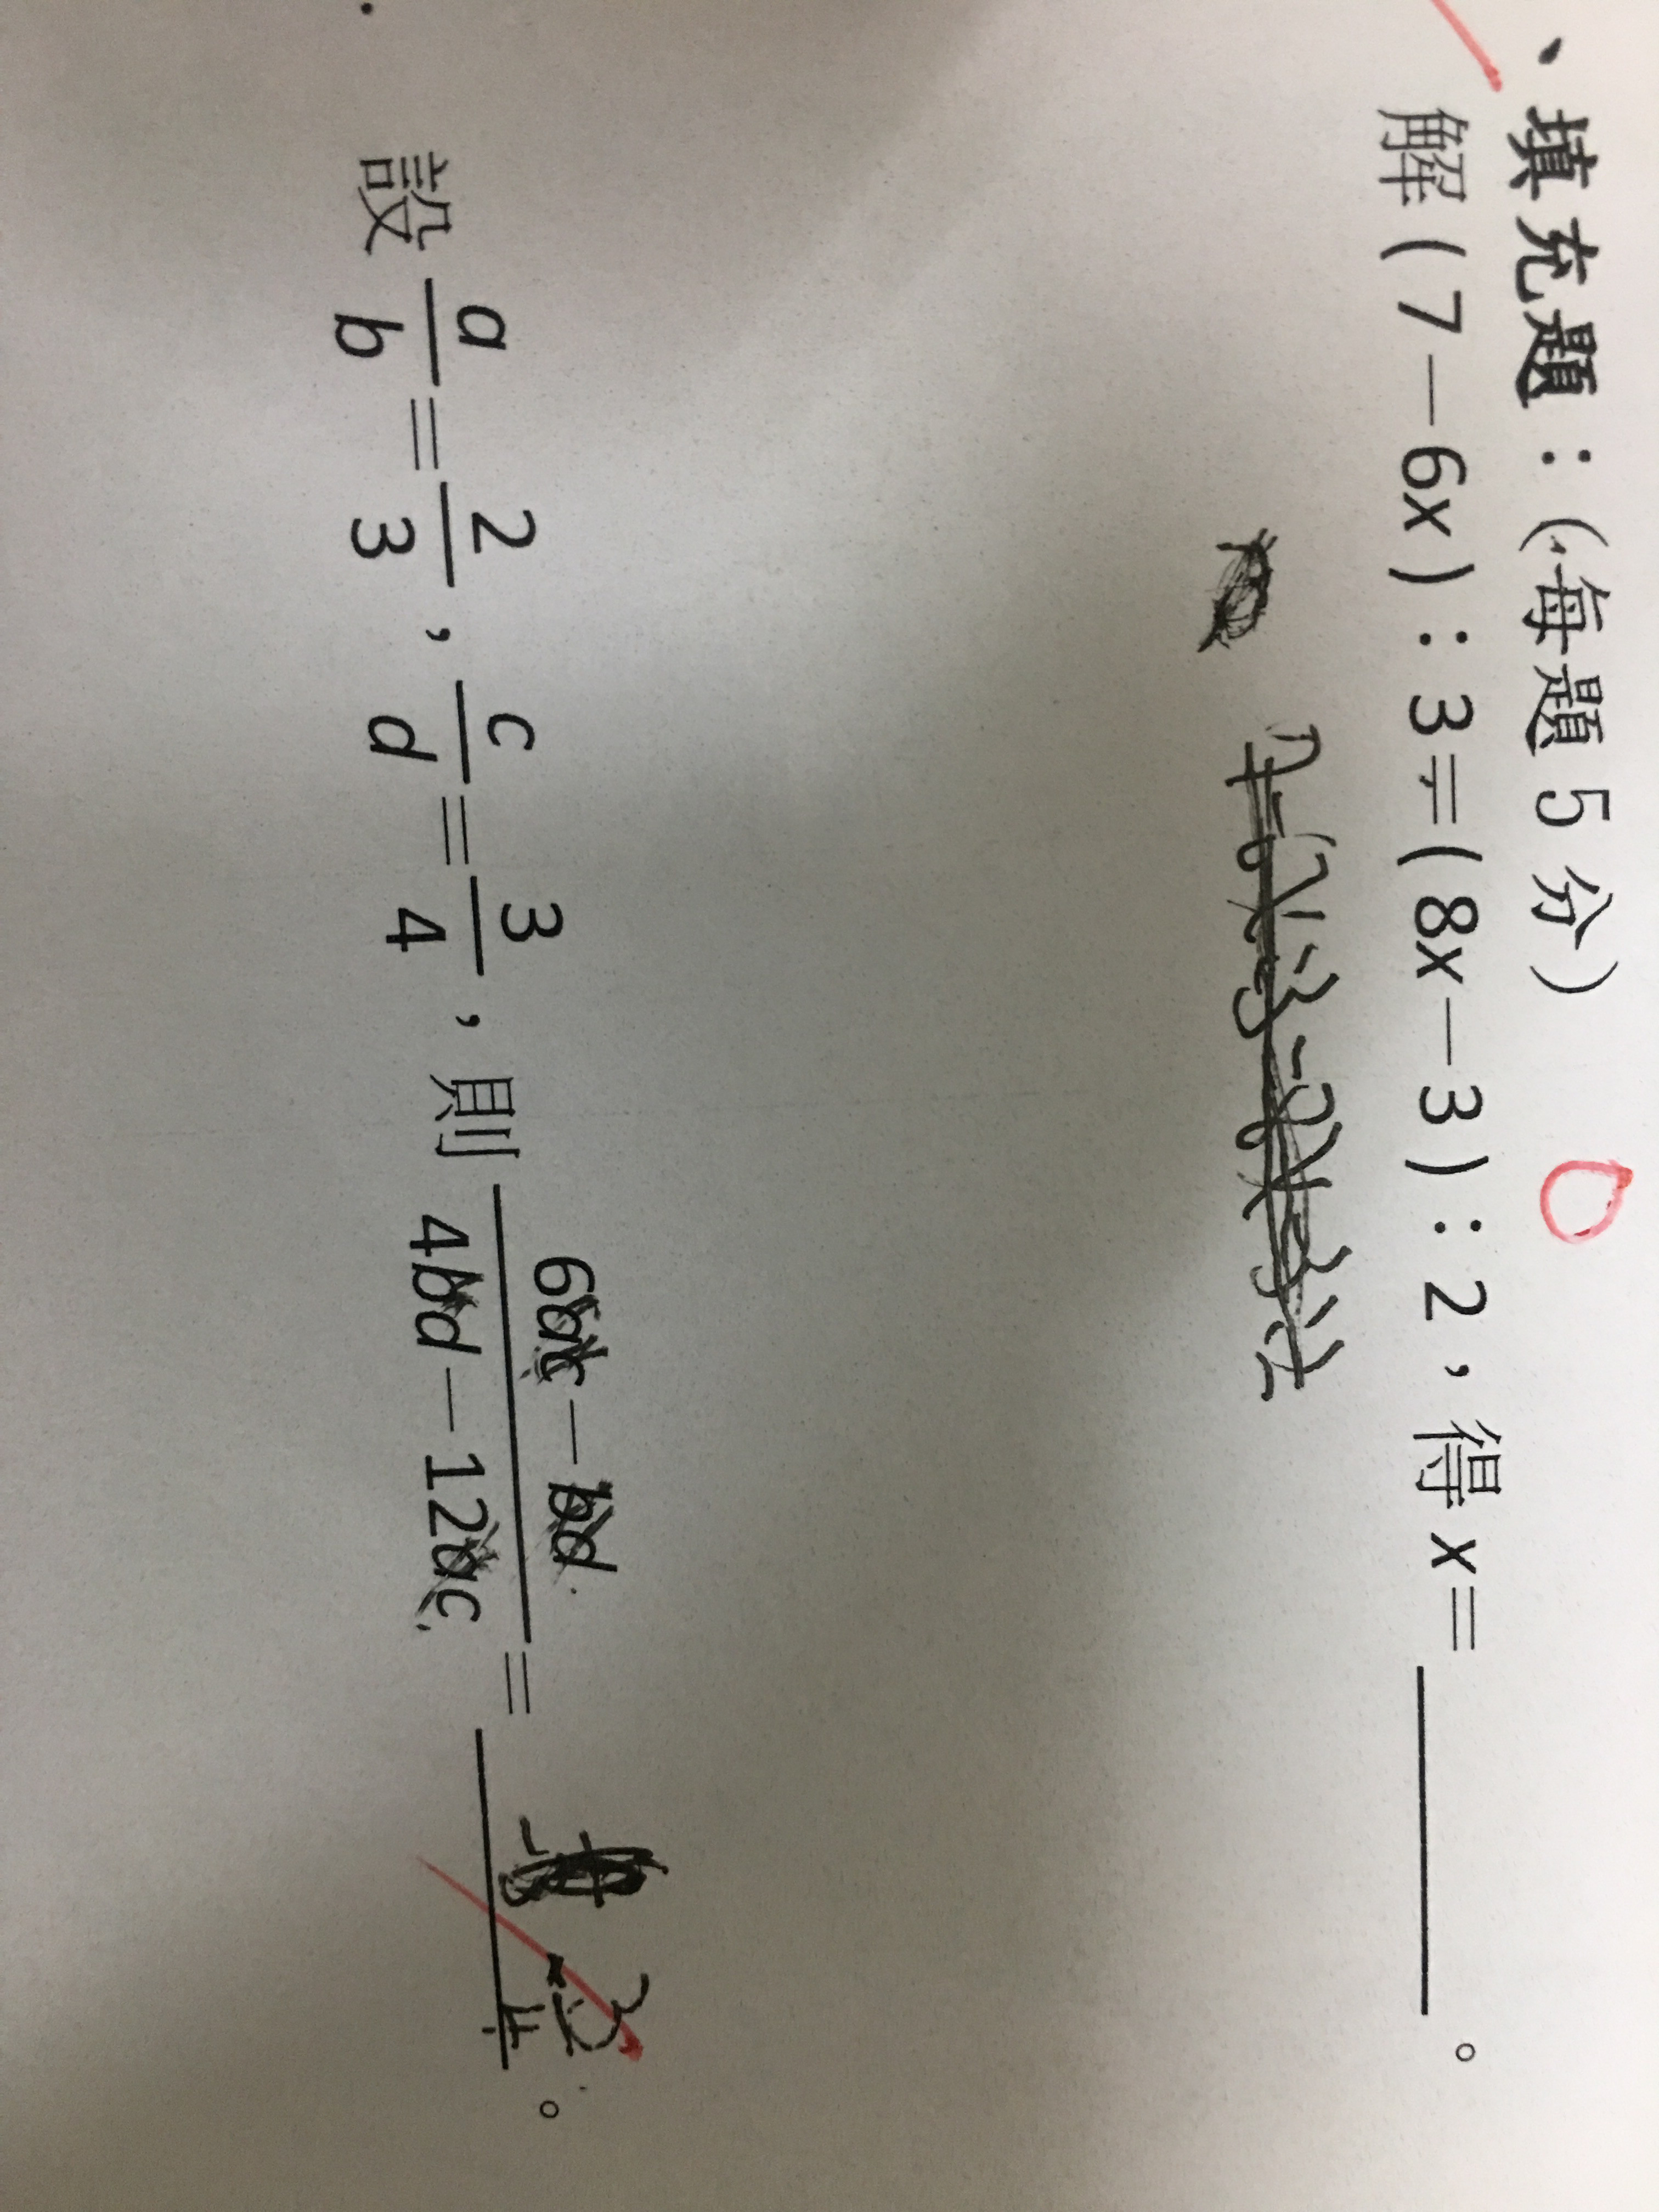 、填充題：(每題5分)
解(7－6x)：3＝(8x－3)：2，得x＝______。
7－6x：3－8x－3：2
設 a/b＝2/3，c/d＝3/4，則 (6ac－bd)/(4bd－12ac)＝ －3/4 。